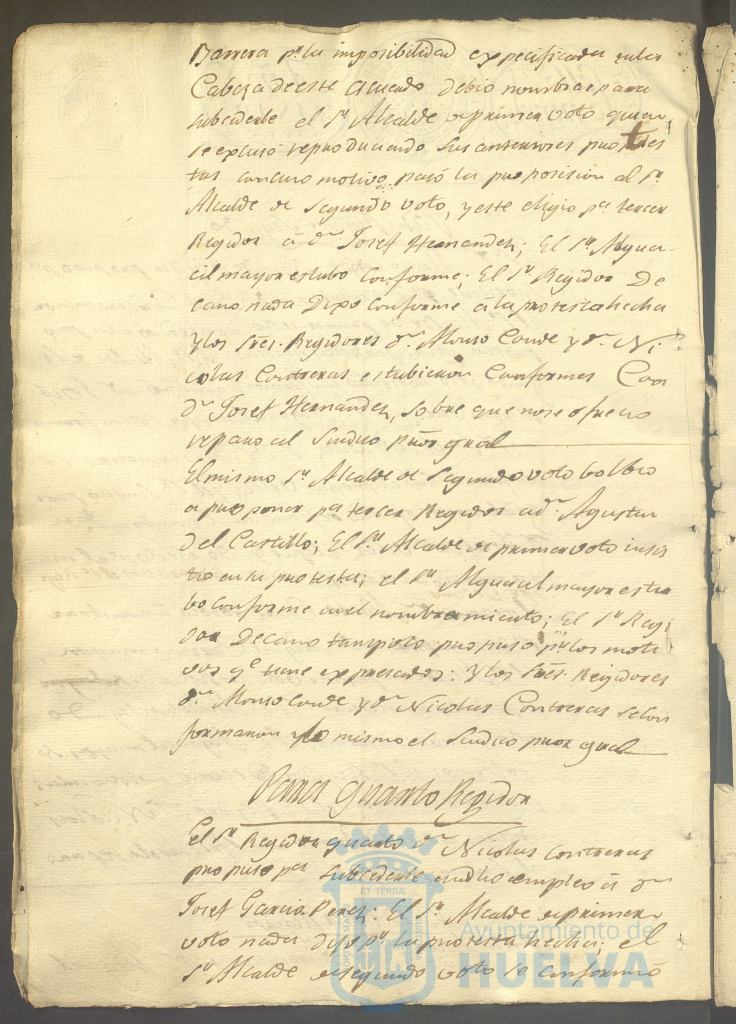 Barrera pr. la imposibilidad expecificada en la
Cabeza de este Acuerdo debio nombrar para
subcederle el Sr. Alcalde de primer voto quien
se excusó reproduciendo sus anteriores protes
tas con cuio motivo pasó la proposicion al Sr.
Alcalde de Segundo voto, y este eligio pa. tercer
Regidor á Dn. Josef Hernandez; El Sr. Algua-
cil mayor estubo conforme; El Sr. Regidor De
cano nada Dixo conforme á la protesta hecha
y los Sres. Regidores Dn. Alonso Conde y Dn. Ni-
colas Contreras estubieron Conformes Con
Dn. Josef Hernandez, sobre que no se ofrecio
reparo al Sindico Prôr gral
El mismo Sr. Alcalde de Segundo voto bolbio
a proponer pa. tercer Regidor a Dn. Agustin
del Castillo; El Sr. Alcalde de primer voto insis
tio en su protesta; el Sr. Alguacil mayor estu
bo conforme en el nombramiento; El Sr. Regi
dor Decano tampoco propuso pr. los moti
vos qe. tiene expresados: y los Sres. Regidores
Dn. Alonso Conde y Dn. Nicolas Contreras se con
formaron y lo mismo el Sindico prôr gral
Para quarto Regidor
El Sr. Regidor quarto Dn. Nicolas Contreras
propuso pa. subcederle en dho empleo á Dn.
Josef Garcia Perez: El Sr. Alcalde de primer
voto nada dijo pr. la protesta hecha; el
Sr. Alcalde de segundo voto se conformó
Ayuntamiento de
HUELVA